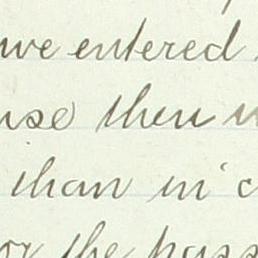 we entered
use then
than in c
or the pass